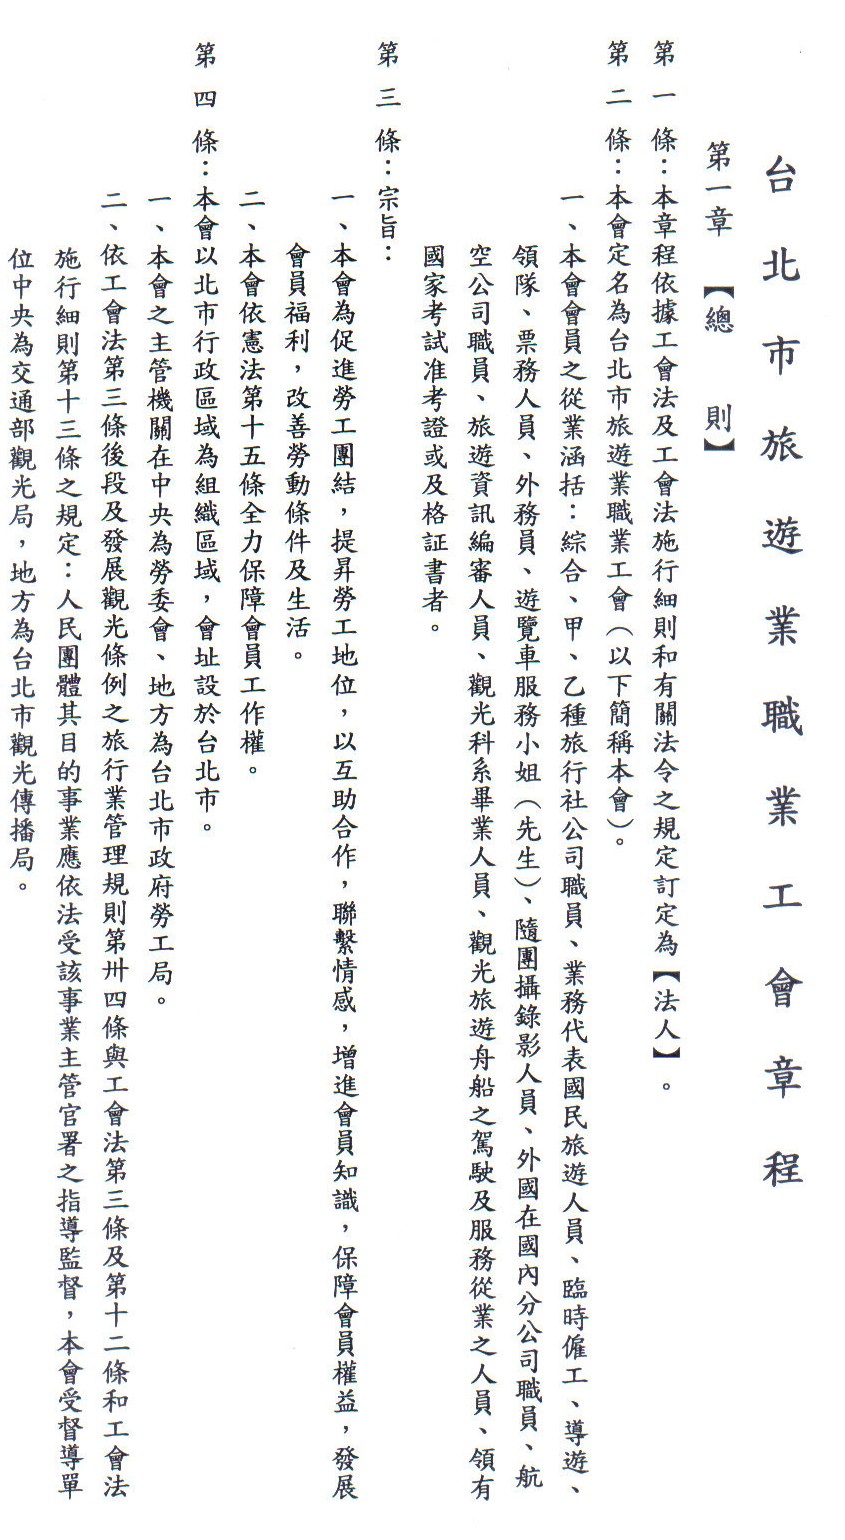 台北市旅遊業職業工會章程
第一章 【總 則】
第一條：本章程依據工會法及工會法施行細則和有關法令之規定訂定為【法人】。
第二條：本會定名為台北市旅遊業職業工會（以下簡稱本會）。
一、本會會員之從業涵括：綜合、甲、乙種旅行社公司職員、業務代表國民旅遊人員、臨時僱工、導遊、
領隊、票務人員、外務員、遊覽車服務小姐（先生）、隨團攝錄影人員、外國在國內分公司職員、航
空公司職員、旅遊資訊編審人員、觀光科系畢業人員、觀光旅遊舟船之駕駛及服務從業之人員、領有
國家考試准考證或及格証書者。
第三條：宗旨：
一、本會為促進勞工團結，提昇勞工地位，以互助合作，聯繫情感，增進會員知識，保障會員權益，發展
會員福利，改善勞動條件及生活。
二、本會依憲法第十五條全力保障會員工作權。
第四條：本會以北市行政區域為組織區域，會址設於台北市。
一、本會之主管機關在中央為勞委會、地方為台北市政府勞工局。
二、依工會法第三條後段及發展觀光條例之旅行業管理規則第卅四條與工會法第三條及第十二條和工會法
施行細則第十三條之規定：人民團體其目的事業應依法受該事業主管官署之指導監督，本會受督導單
位中央為交通部觀光局，地方為台北市觀光傳播局。